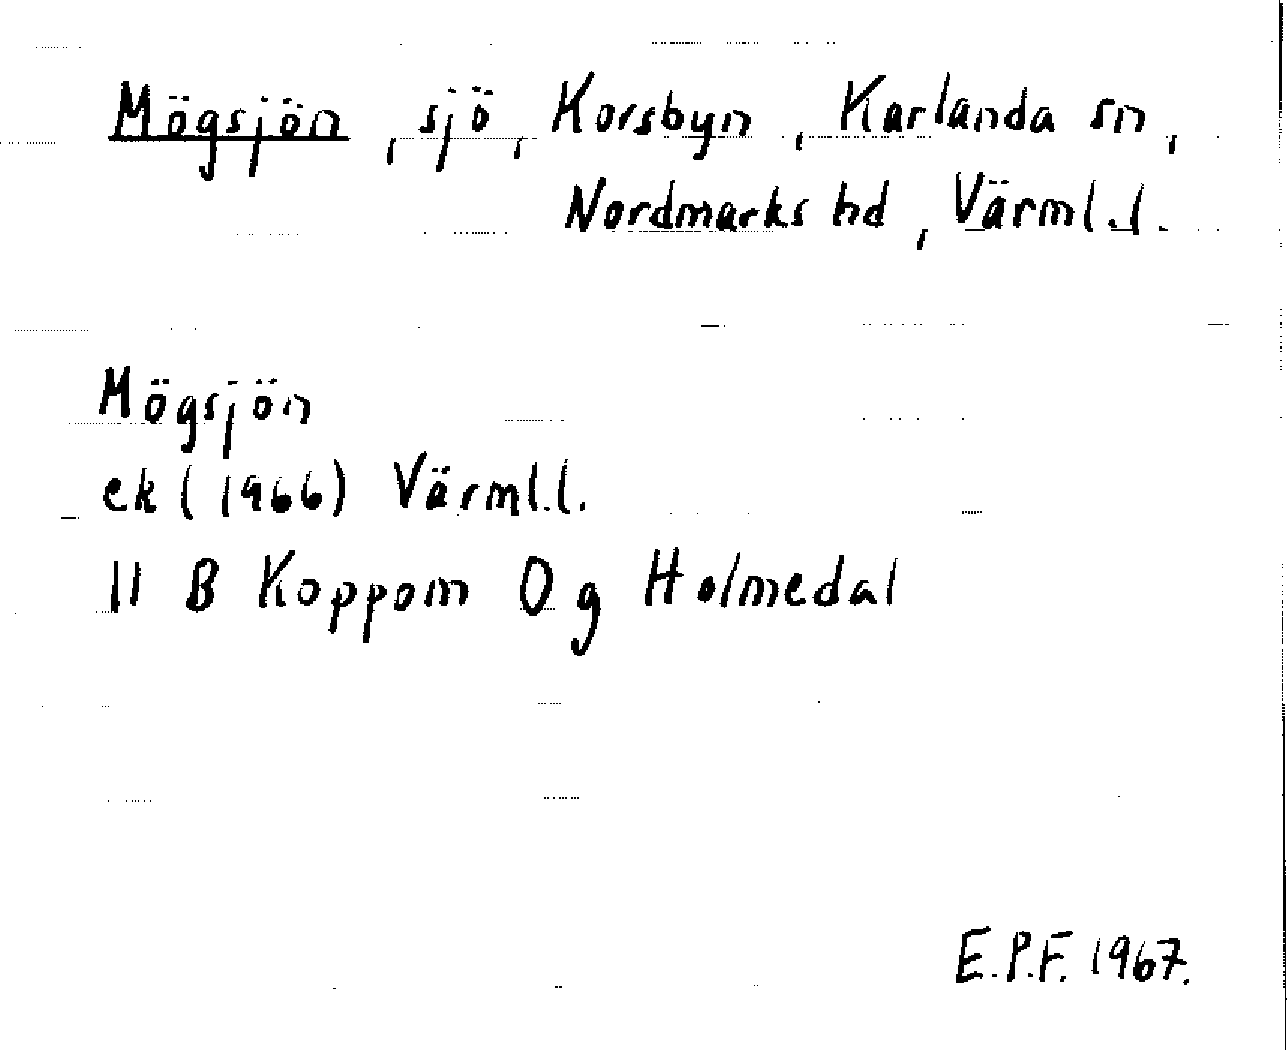 Mögsjön, sjö, Korsbyn, Karlanda sn,
Nordmarks hd, Värml.l.
Mögsjön
ek (1966) Värml.l.
11 B Koppom 0 g Holmedal
E.P.F. 1967.